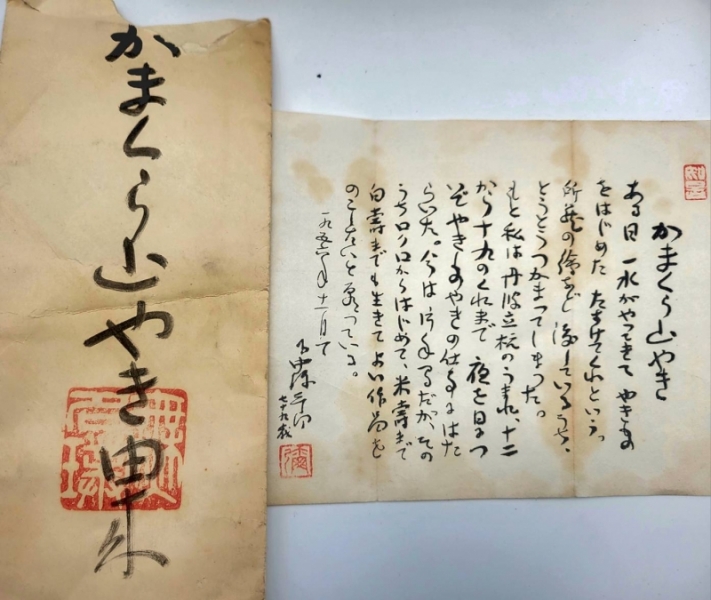 かまくら山やき由来
かまくら山やき
ある日 一水がやってきて やきもの
をはじめた くれという。
所蔵の絵など しているうち、
とうとうつかまってしまった。
もと私は丹波立杭のうまれ、十二
から十九のくれまで 夜を日につ
いでやきものやきの仕事にはた
らいた。今は だが、その
うちロクロからはじめて、米寿まで
白寿までも生きてよい作品を
のこしたいと思っている。
一九五六年十一月
下中弥三郎
七十九